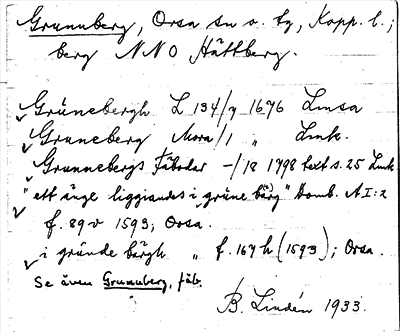 Grunuberg, Orsa sn o. tg, Kopp. l.;
berg NNO Hättberg.
Grünebergh L 134/7 1676 Limsa
Gruneberg Mora/1 " Link.
Grunnebergs Fäbodar -/18 1798 text s. 25 Link
"ett änge liggiandes i grüne bärg" Domb. A I:2
f. 89v 1593; Orsa.
i gründe bärgh " f. 167h (1593); Orsa.
Se även Grunuberg, fäb.
B. Lindén 1933.